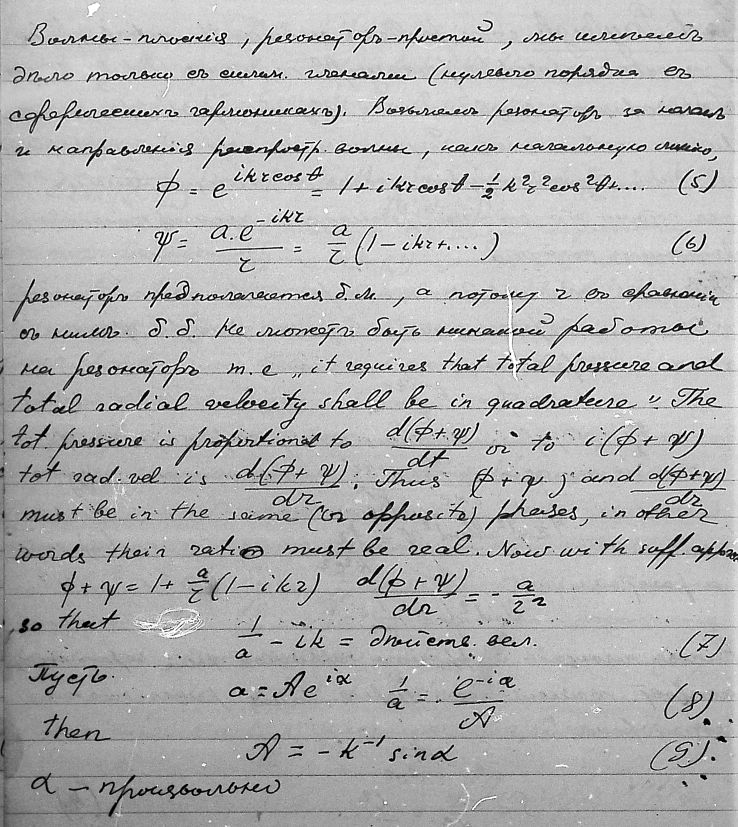 Волны – плоскія, резонаторъ – простой, мы имѣемъ
дѣло только съ симм. членами (нулевого порядка въ
сферическихъ гармоникахъ). Возьмемъ резонаторъ за начало
и направленія распростр. волны, какъ начальную линію,
ϕ = e^{ikr cosθ} = 1 + ikr cosθ − ½ k²r² cos²θ + .... (5)
ψ = a.e^{−ikr}/r = a/r (1 − ikr + ....) (6)
резонаторъ предполагается б.м., а потому r въ сравненіи
съ нимъ б.б. Не можетъ быть никакой работы
на резонаторъ т.е „it requires that total pressure and
total radial velocity shall be in quadrature". The
tot. pressure is proportional to d(ϕ+ψ)/dt or to i(ϕ+ψ)
tot rad. vel is d(ϕ+ψ)/dr. Thus (ϕ+ψ) and d(ϕ+ψ)/dr
must be in the same (or opposite) phases, in other
words their ratio must be real. Now with suff approx
ϕ+ψ = 1 + a/r (1 − ikr) d(ϕ+ψ)/dr = − a/r²
so that
1/a − ik = дѣйств. вел. (7)
Пусть
a = Ae^{iα} 1/a = e^{−iα}/A (8)
then
A = − k⁻¹ sinα (9)
α – произвольно